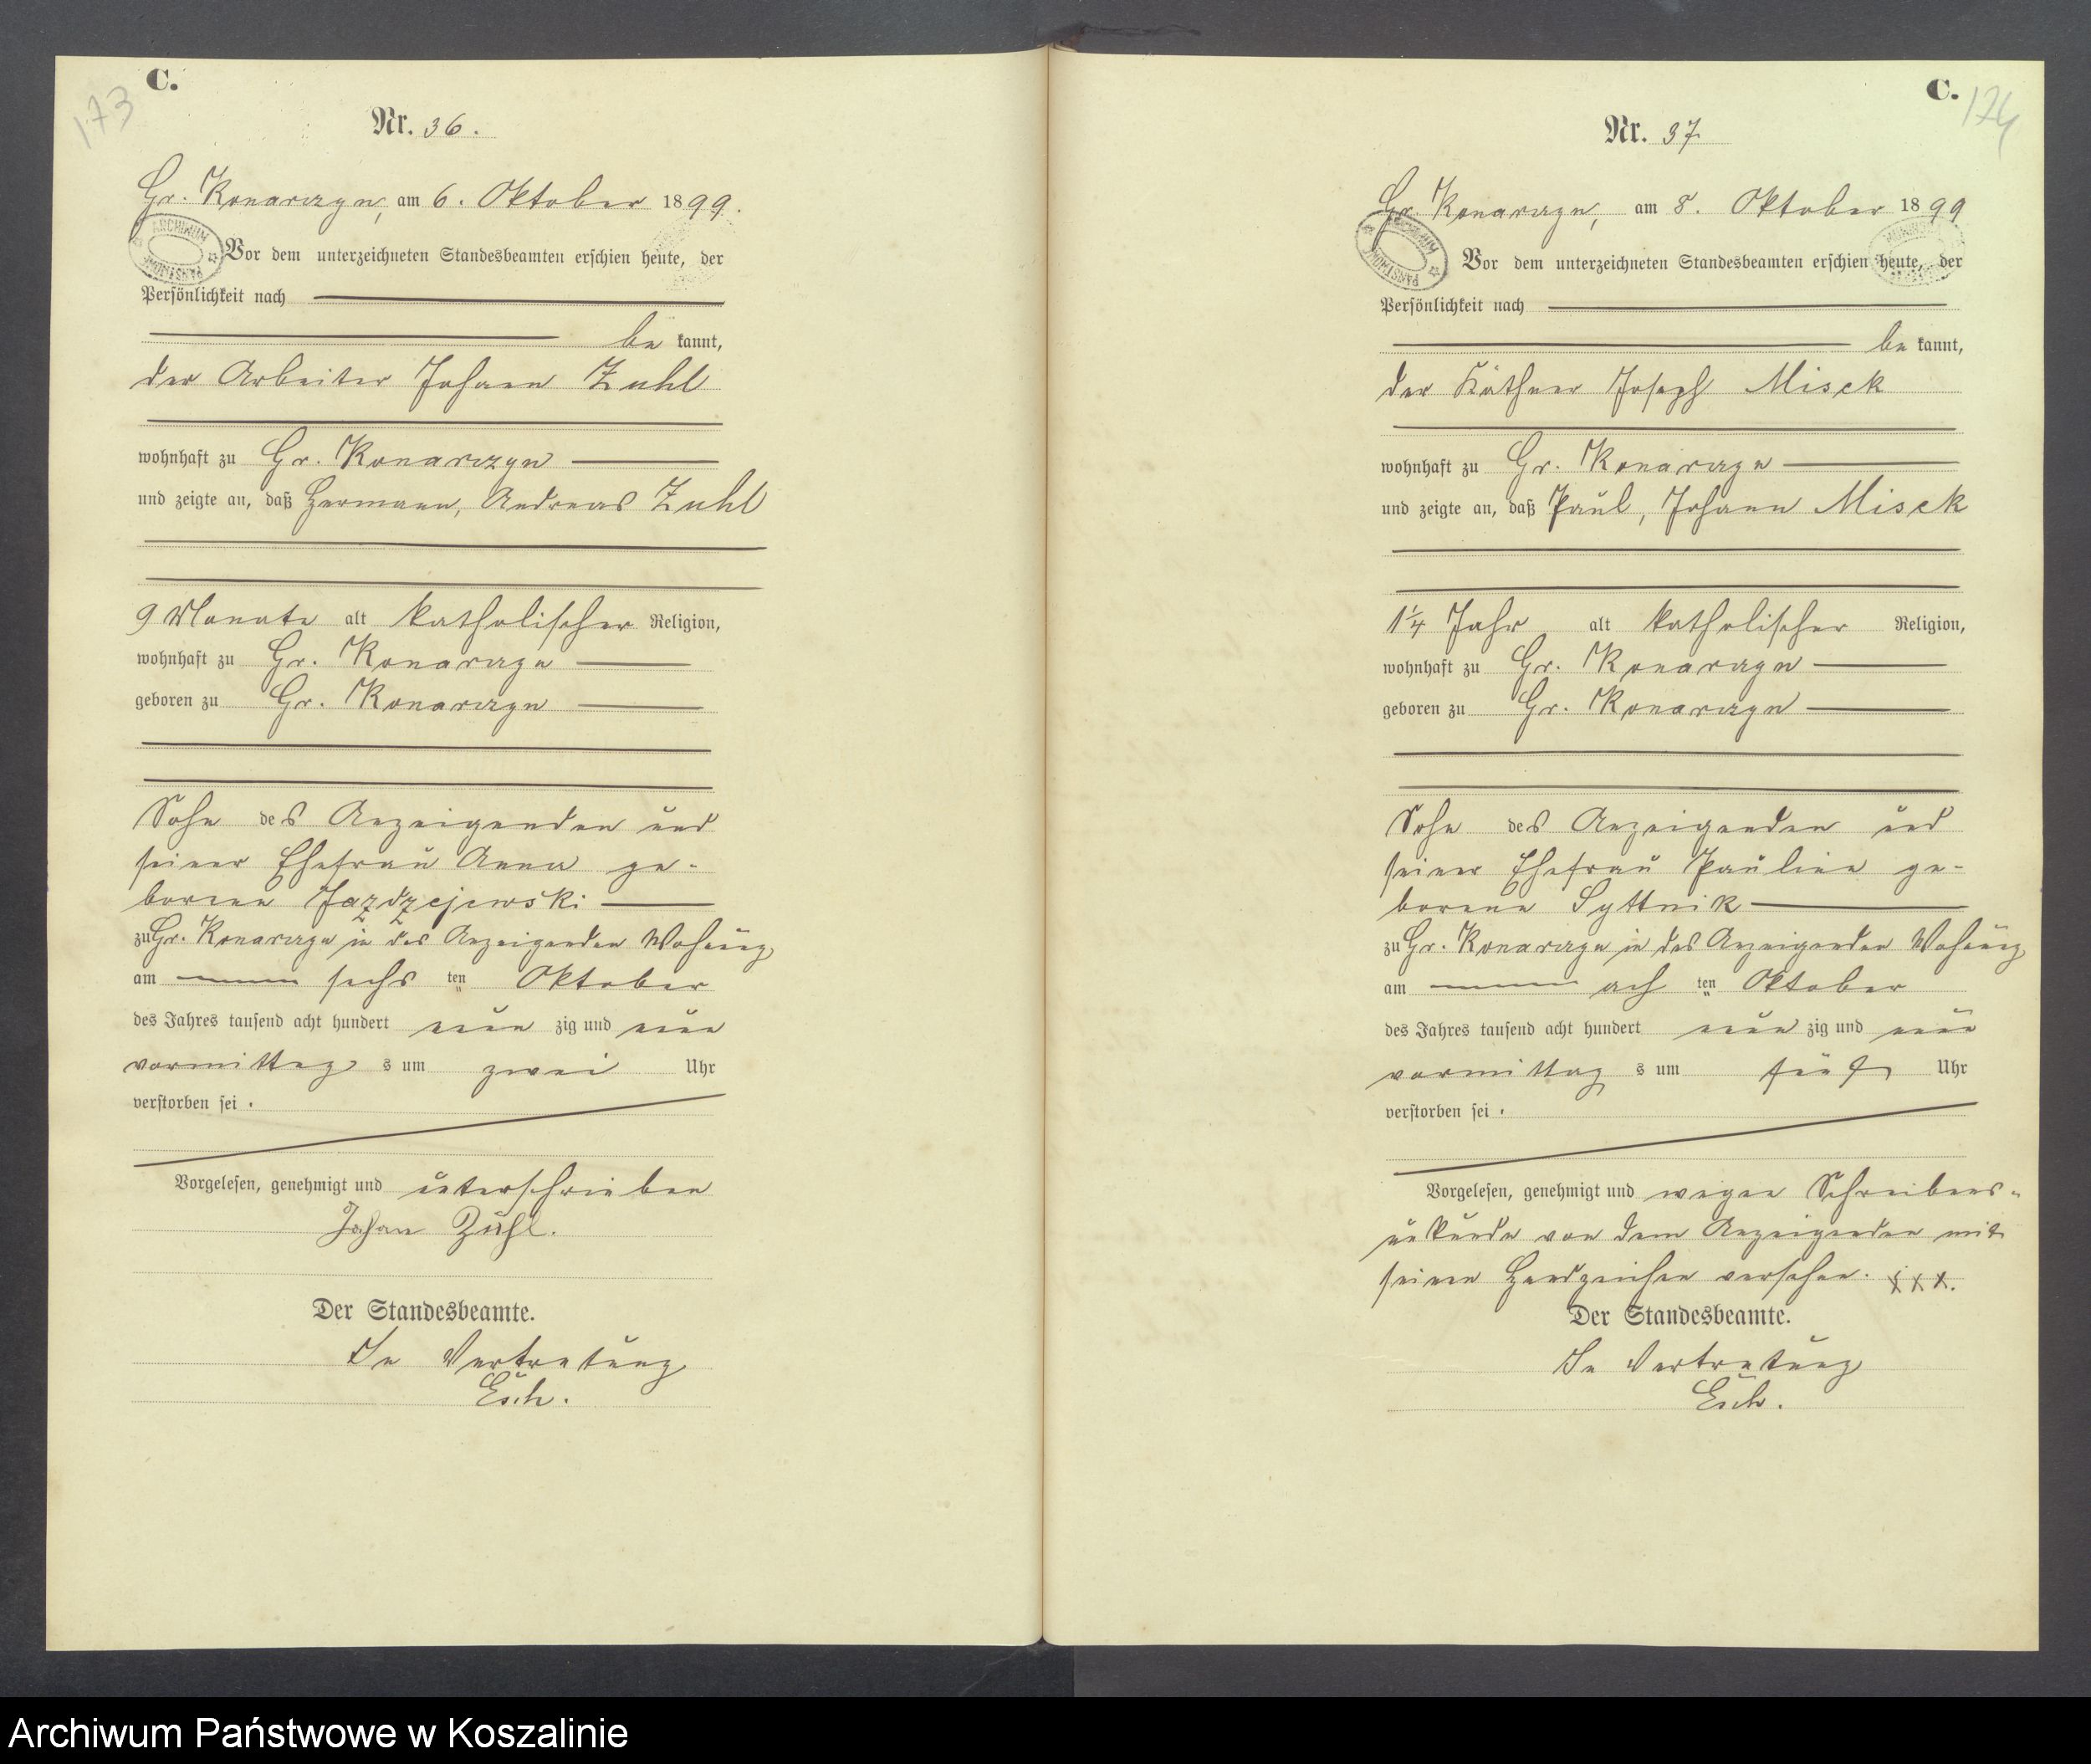 C.
173
Nr. 36.
Gr. Konarczyn, am 6. Oktober 1899.
ARCHIWUM PAŃSTWOWE
Vor dem unterzeichneten Standesbeamten erschien heute, der
Persönlichkeit nach
be kannt,
der Arbeiter Johann Zuhl
wohnhaft zu Gr. Konarczyn
und zeigte an, daß Hermann, Andreas Zuhl
9 Monate alt katholischer Religion,
wohnhaft zu Gr. Konarczyn
geboren zu Gr. Konarczyn
Sohn des Anzeigenden und
seiner Ehefrau Anna ge-
borene Jazdzejewski
zu Gr. Konarczyn in des Anzeigenden Wohnung
am sechs ten Oktober
des Jahres tausend acht hundert neun zig und neun
vormittag s um zwei Uhr
verstorben sei.
Vorgelesen, genehmigt und unterschrieben
Johan Zuhl.
Der Standesbeamte.
In Vertretung
Esch.
C.
174
Nr. 37
Gr. Konarczyn, am 8. Oktober 1899
ARCHIWUM PAŃSTWOWE
Vor dem unterzeichneten Standesbeamten erschien heute, der
Persönlichkeit nach
be kannt,
der Käthner Joseph Misek
wohnhaft zu Gr. Konarczyn
und zeigte an, daß Paul, Johann Misek
1¼ Jahr alt katholischer Religion,
wohnhaft zu Gr. Konarczyn
geboren zu Gr. Konarczyn
Sohn des Anzeigenden und
seiner Ehefrau Pauline ge-
borene Syttnik
zu Gr. Konarczyn in des Anzeigenden Wohnung
am ach ten Oktober
des Jahres tausend acht hundert neun zig und neun
vormittag s um fünf Uhr
verstorben sei.
Vorgelesen, genehmigt und wegen Schreibens-
unkunde von dem Anzeigenden mit
seinen Handzeichen versehen. xxx.
Der Standesbeamte.
In Vertretung
Esch.
Archiwum Państwowe w Koszalinie